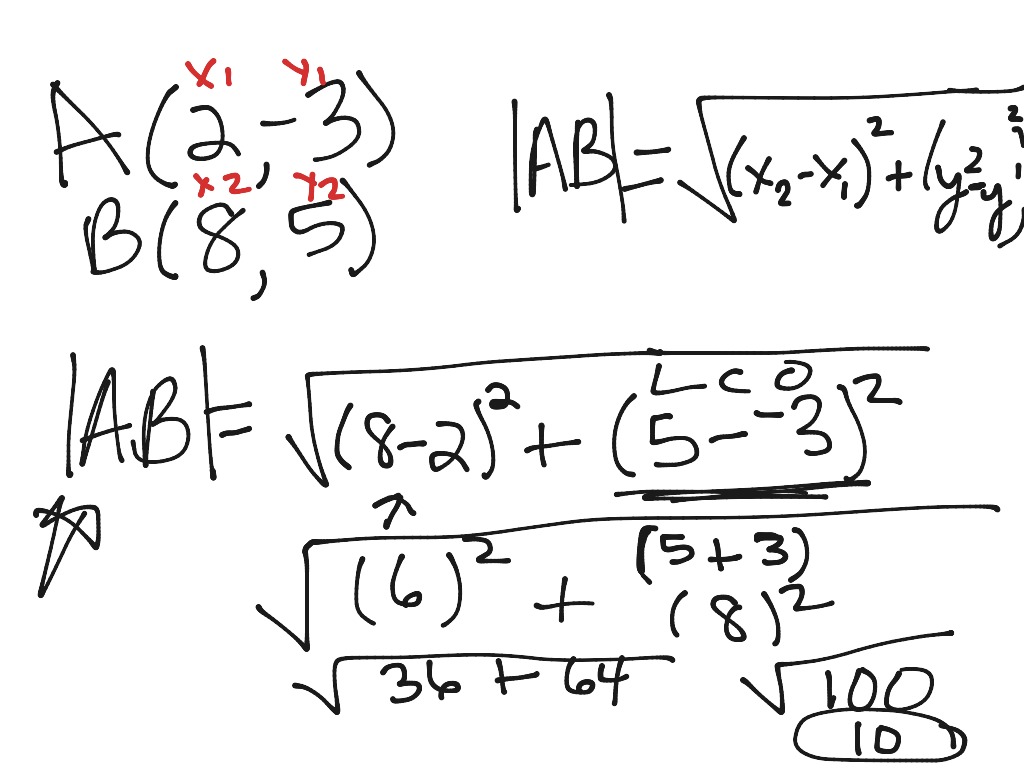 x1 y1
A(2, -3)
x2 y2
B(8, 5)
|AB| = √(x₂-x₁)² + (y₂-y₁)²
L C O
|AB| = √(8-2)² + (5--3)²
(5+3)
√(6)² + (8)²
√36+64 √100
10